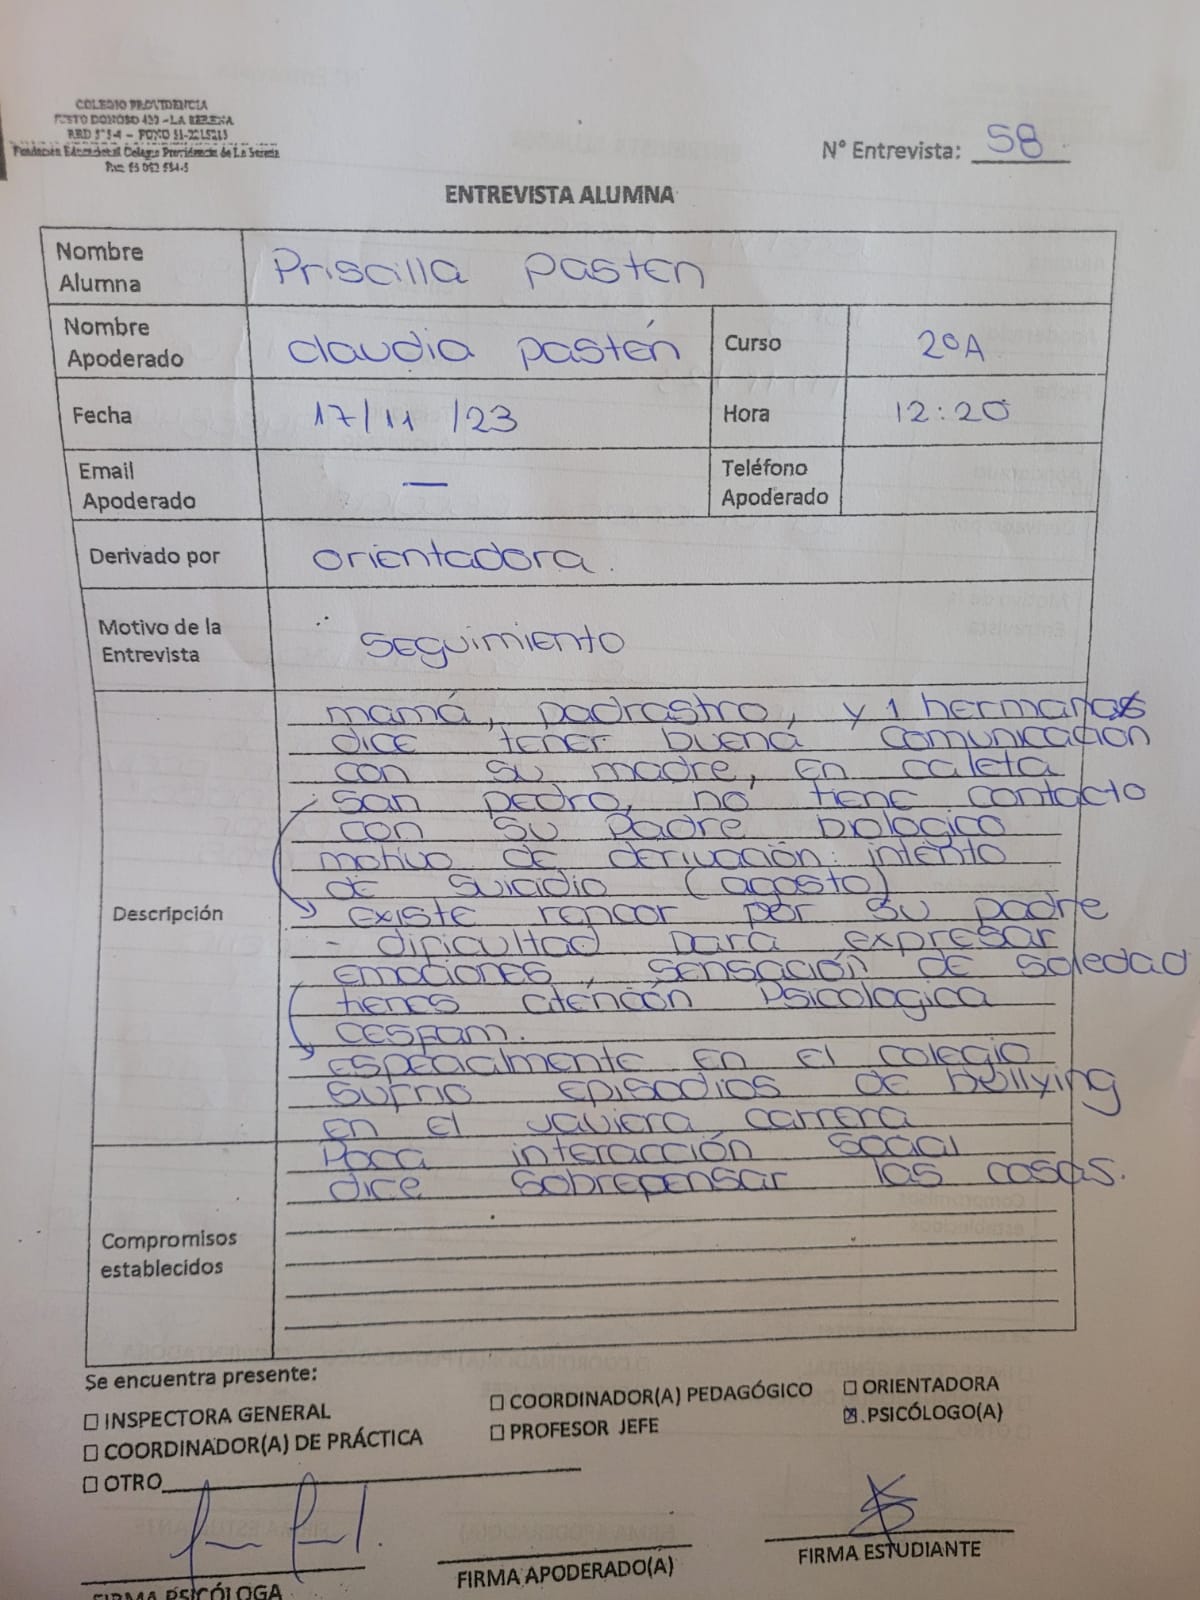 COLEGIO PROVIDENCIA
JUSTO DONOSO 420 - LA SERENA
RBD - FONO 51-2215215
Fundación Educacional Colegio Providencia de La Serena
N° Entrevista: 58
ENTREVISTA ALUMNA
Nombre Alumna Priscilla Pasten
Nombre Apoderado Claudia Pastén Curso 2ºA
Fecha 17/11/23 Hora 12:20
Email Apoderado — Teléfono Apoderado
Derivado por orientadora.
Motivo de la Entrevista Seguimiento
Descripción
mamá, padrastro, y 1 hermanas
dice tener buena comunicación
con su madre, en caleta
San pedro, no tiene contacto
con su padre biológico
motivo de derivación: intento
de suicidio (agosto)
existe rencor por su padre
- dificultad para expresar
emociones, sensación de soledad
tienes atención Psicologica
CESFAM.
especialmente en el colegio
sufrio episodios de bellying
en el Javiera carrera
Poca interacción social
dice sobrepensar las cosas.
Compromisos establecidos
Se encuentra presente:
☐ INSPECTORA GENERAL ☐ COORDINADOR(A) PEDAGÓGICO ☐ ORIENTADORA
☐ COORDINADOR(A) DE PRÁCTICA ☐ PROFESOR JEFE ☒ .PSICÓLOGO(A)
☐ OTRO
FIRMA PSICÓLOGA FIRMA APODERADO(A) FIRMA ESTUDIANTE